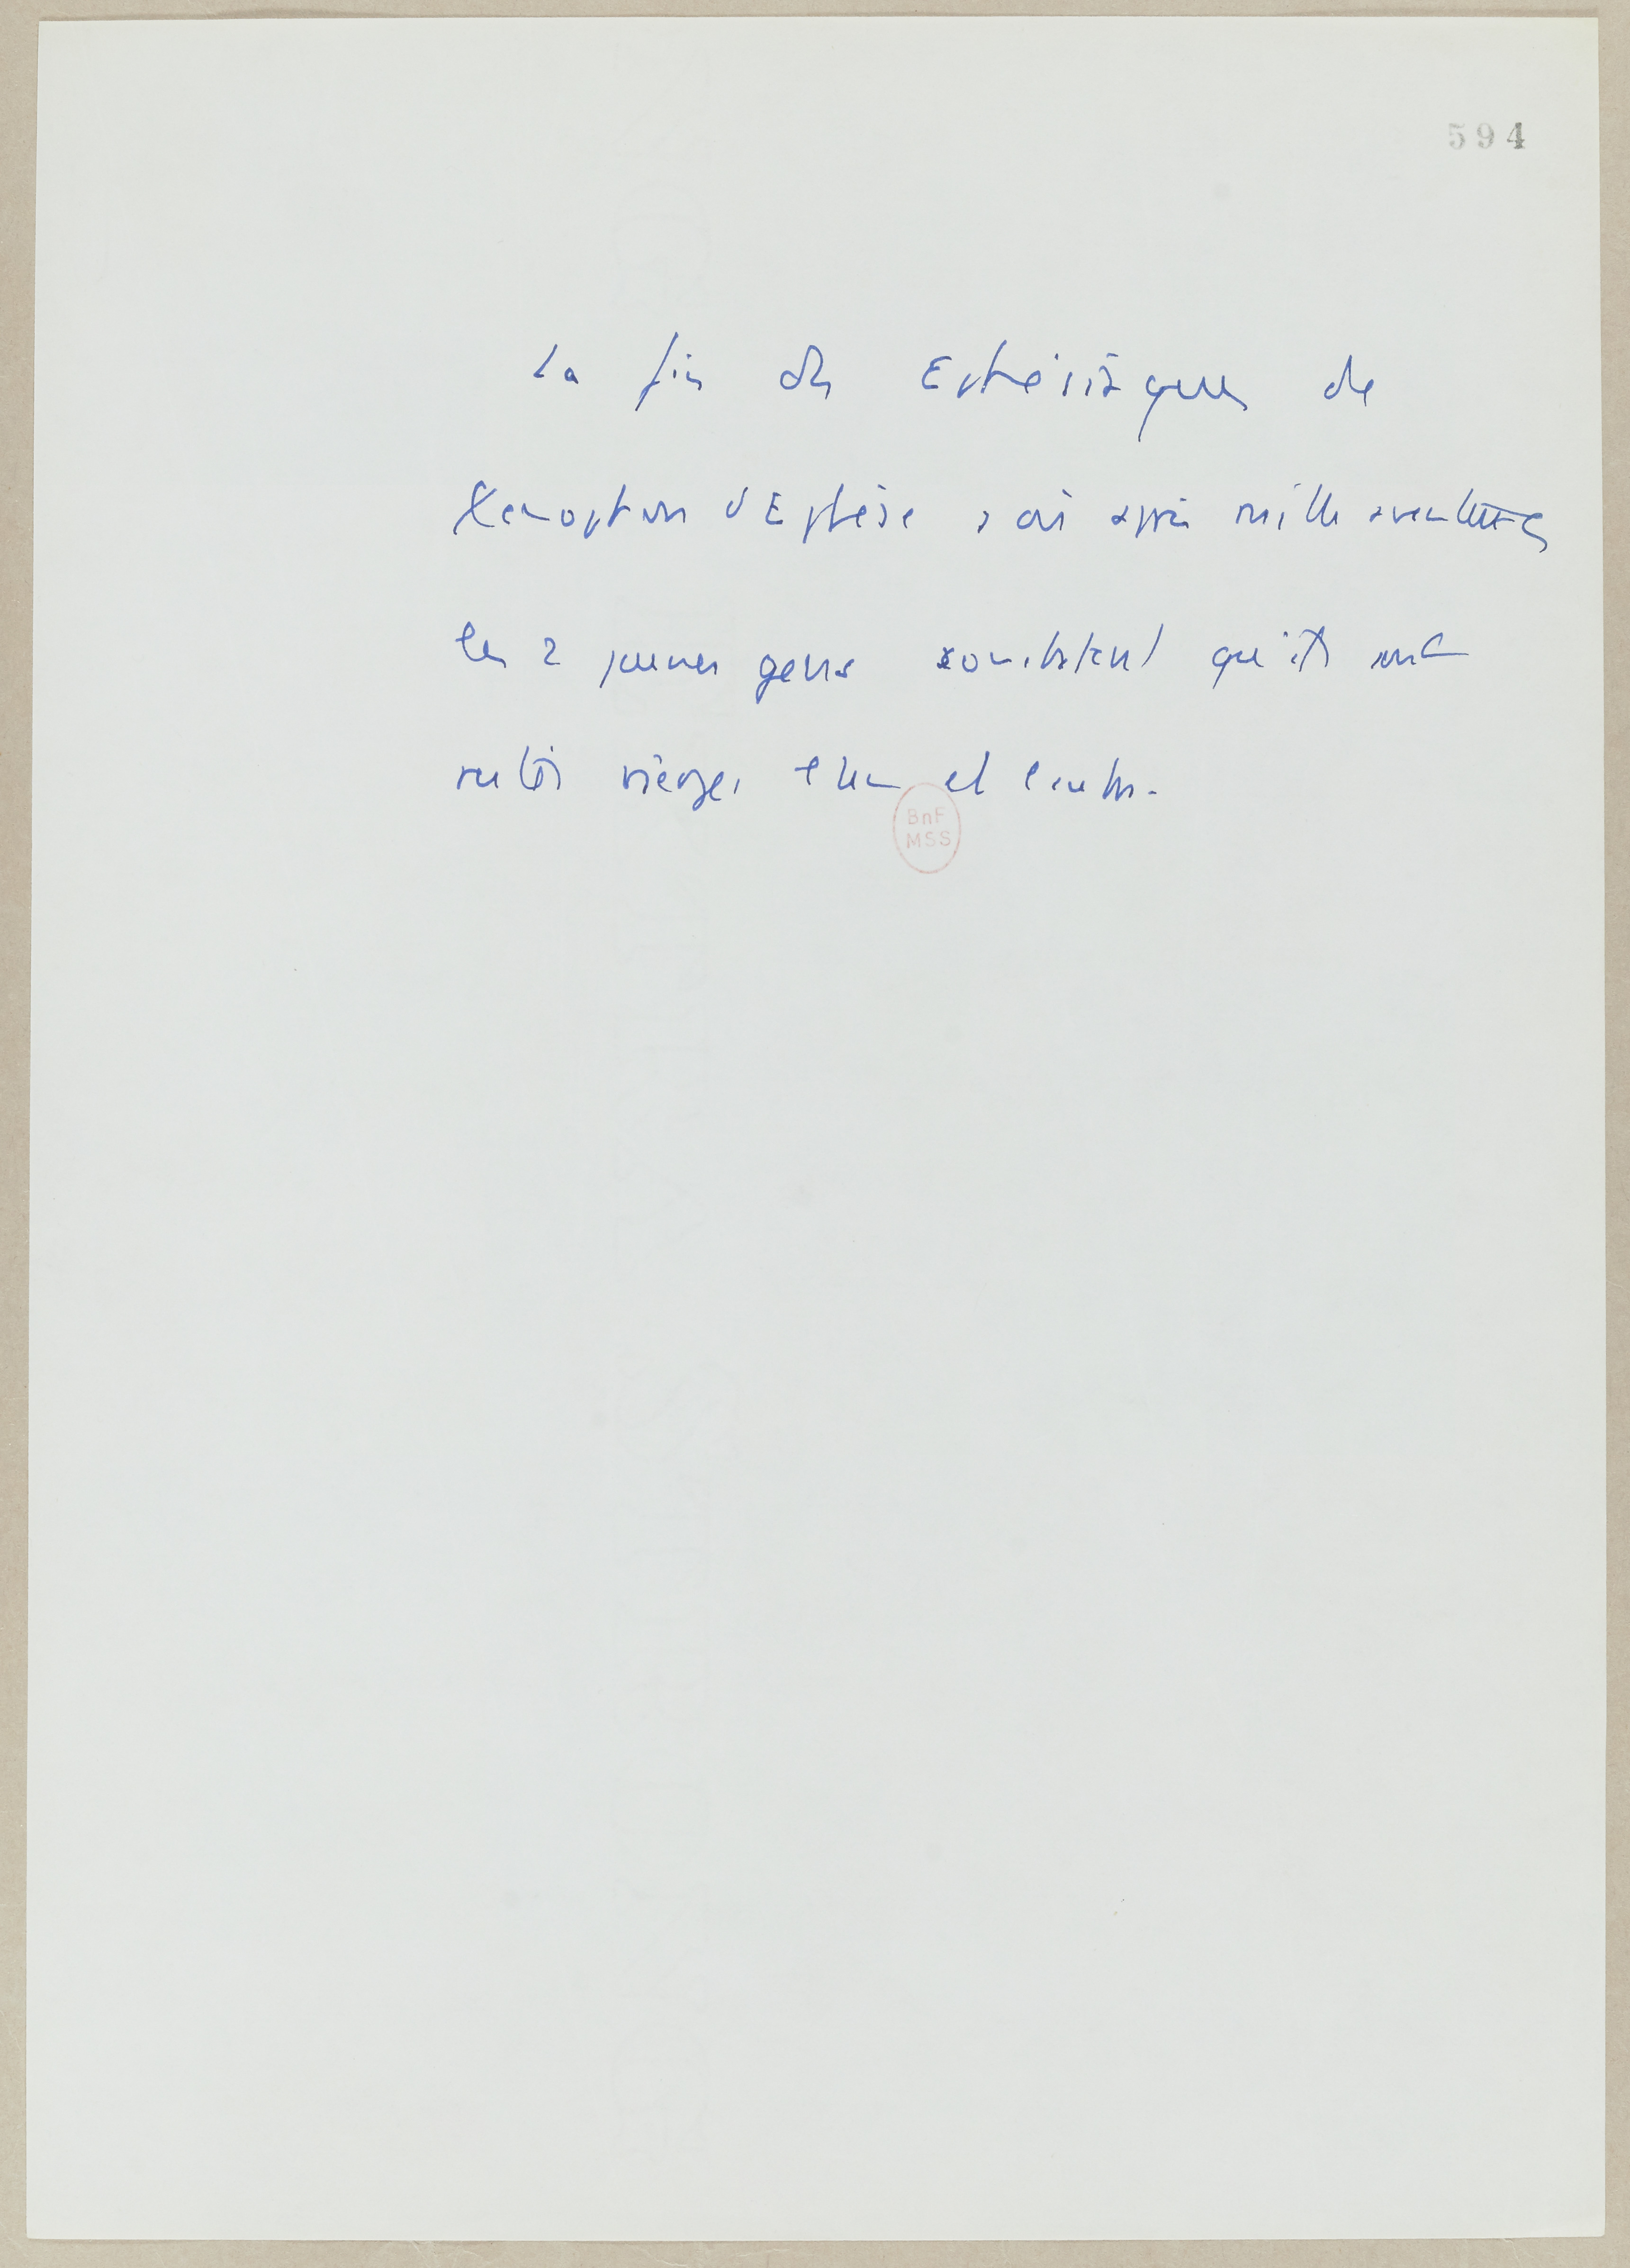 594
La fin des Ephésiaques de
Xenophon d'Ephèse, où après mille aventures
les 2 jeunes gens constatent qu'ils sont
restés vierges l'un et l'autre.
BnF
MSS